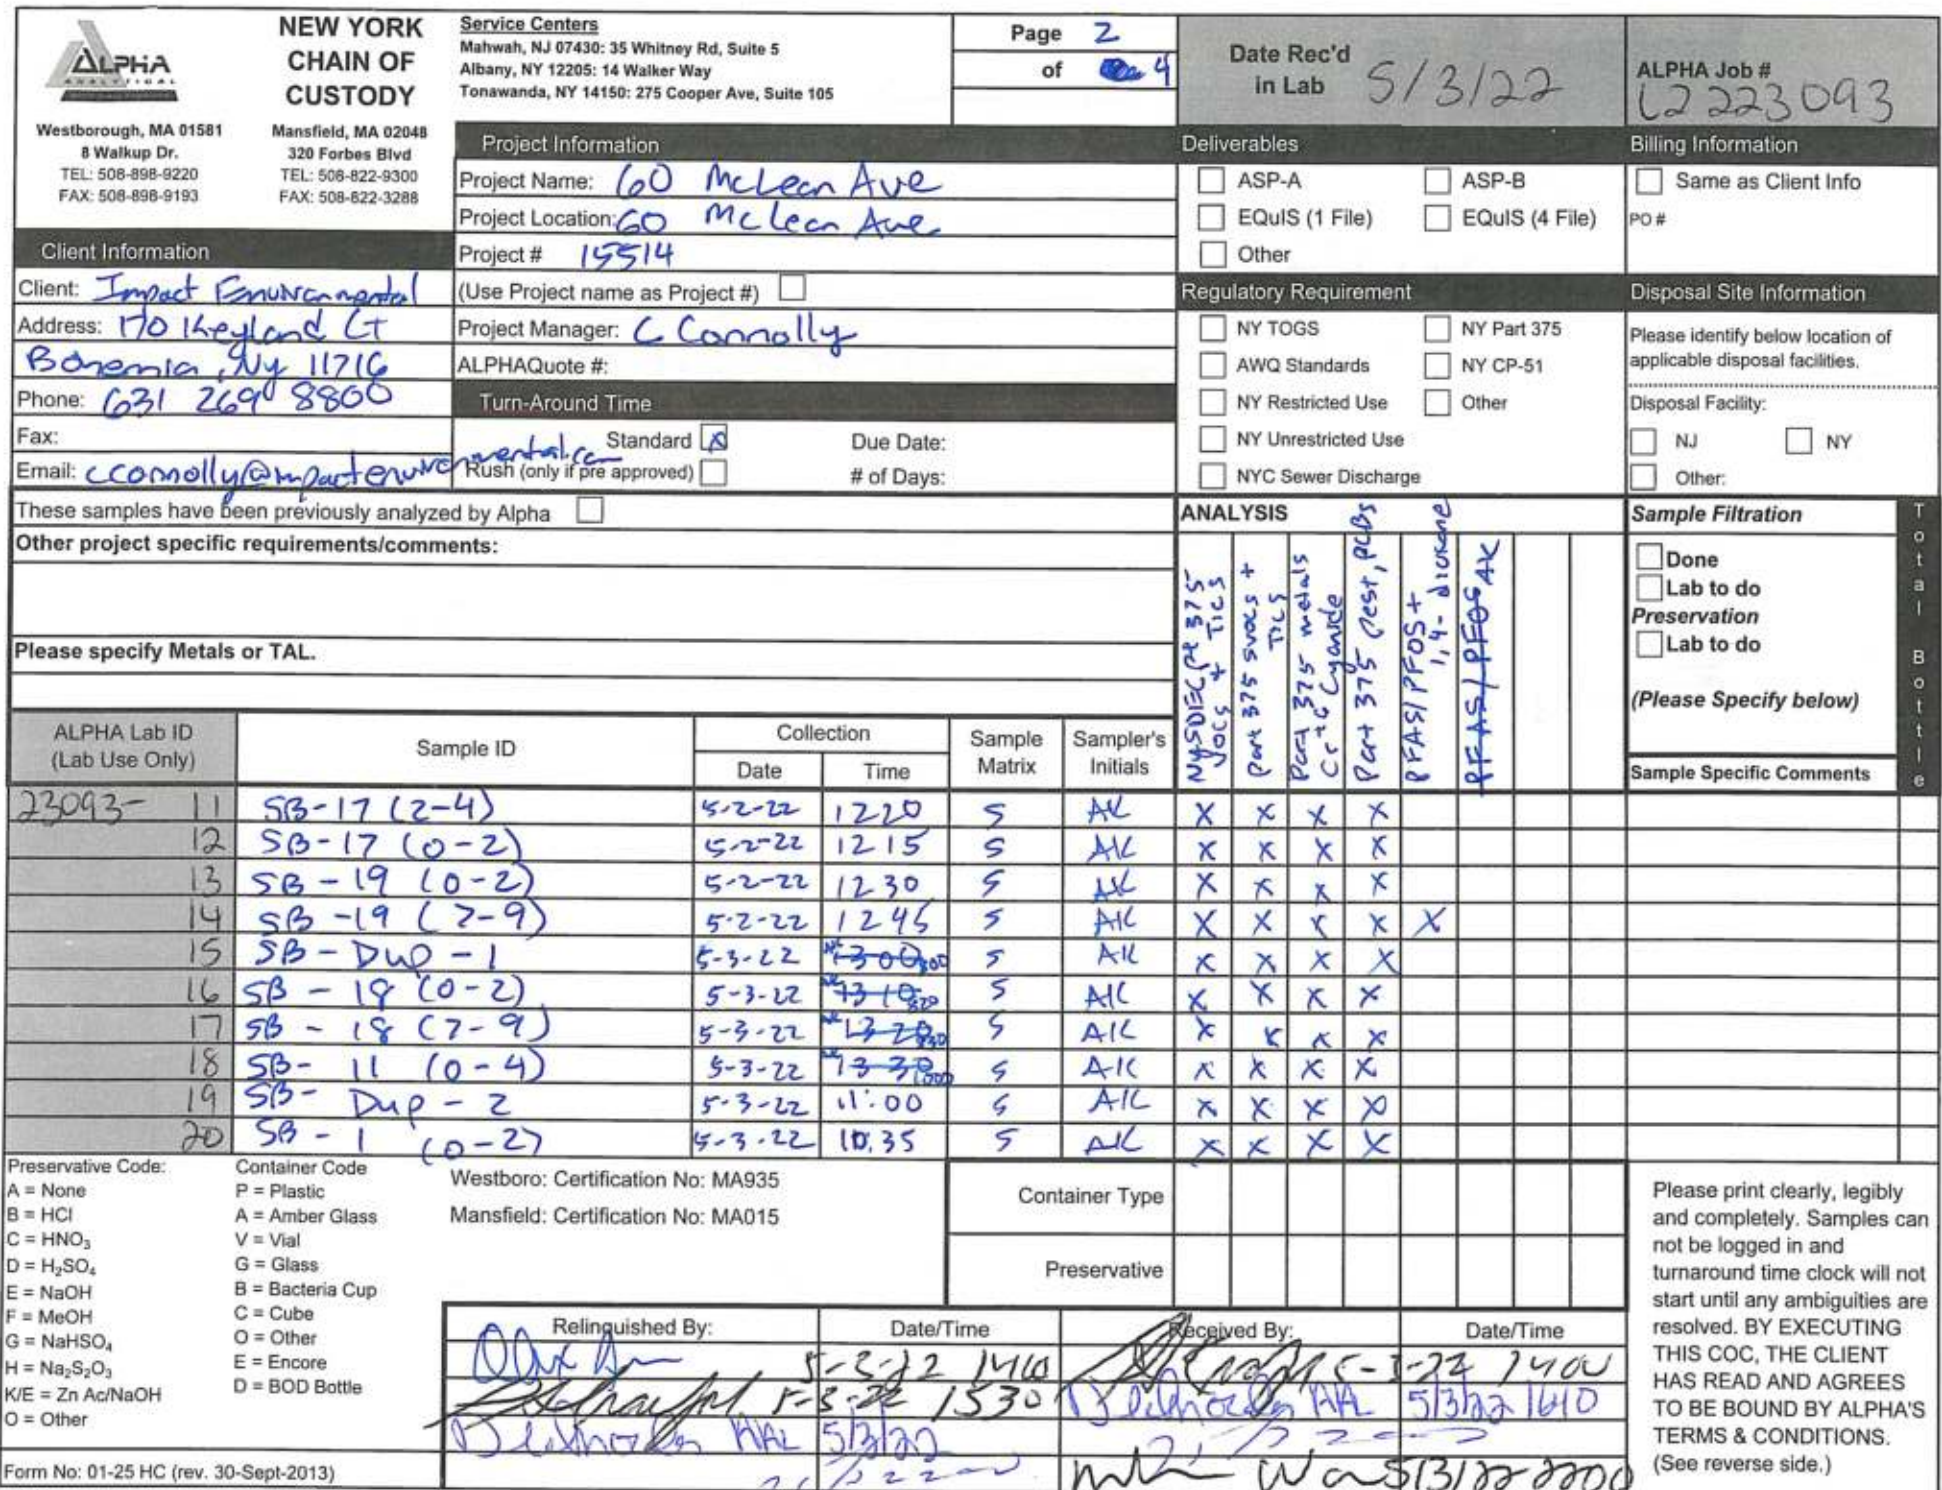 ALPHA
ANALYTICAL
NEW YORK
CHAIN OF
CUSTODY
Westborough, MA 01581
8 Walkup Dr.
TEL: 508-898-9220
FAX: 508-898-9193
Mansfield, MA 02048
320 Forbes Blvd
TEL: 508-822-9300
FAX: 508-822-3288
Service Centers
Mahwah, NJ 07430: 35 Whitney Rd, Suite 5
Albany, NY 12205: 14 Walker Way
Tonawanda, NY 14150: 275 Cooper Ave, Suite 105
Page 2
of 4
Date Rec'd
in Lab 5/3/22
ALPHA Job #
L2223093
Client Information
Client: Impact Environmental
Address: 170 Keyland Ct
Bohemia, Ny 11716
Phone: 631 269 8800
Fax:
Email: cconnolly@impactenvironmental.com
Project Information
Project Name: 60 McLean Ave
Project Location: 60 McLean Ave
Project # 15514
(Use Project name as Project #)
Project Manager: C Connolly
ALPHAQuote #:
Turn-Around Time
Standard X Due Date:
Rush (only if pre approved) # of Days:
Deliverables
ASP-A ASP-B
EQuIS (1 File) EQuIS (4 File)
Other
Regulatory Requirement
NY TOGS NY Part 375
AWQ Standards NY CP-51
NY Restricted Use Other
NY Unrestricted Use
NYC Sewer Discharge
Billing Information
Same as Client Info
PO #
Disposal Site Information
Please identify below location of
applicable disposal facilities.
Disposal Facility:
NJ NY
Other:
These samples have been previously analyzed by Alpha
Other project specific requirements/comments:
Please specify Metals or TAL.
ANALYSIS
NYSDEC pt 375
VOCs + TICS
Part 375 SVOCs +
TICS
Part 375 metals
Cr+6 Cyanide
Part 375 Pest, PCBs
PFAS/PFOS +
1,4-dioxane
PFAS/PFOS AK
Sample Filtration
Done
Lab to do
Preservation
Lab to do
(Please Specify below)
Sample Specific Comments
Total Bottle
ALPHA Lab ID
(Lab Use Only)
Sample ID
Collection
Date Time
Sample
Matrix
Sampler's
Initials
23093- 11 SB-17 (2-4) 5-2-22 1220 S AK X X X X
12 SB-17 (0-2) 5-2-22 1215 S AK X X X X
13 SB-19 (0-2) 5-2-22 1230 S AK X X X X
14 SB-19 (7-9) 5-2-22 1245 S AK X X X X X
15 SB-Dup-1 5-3-22 1300 800 S AK X X X X
16 SB-18 (0-2) 5-3-22 1310 820 S AK X X X X
17 SB-18 (7-9) 5-3-22 1320 830 S AK X X X X
18 SB-11 (0-4) 5-3-22 1330 S AK X X X X
19 SB-Dup-2 5-3-22 11:00 S AK X X X X
20 SB-1 (0-2) 5-3-22 10:35 S AK X X X X
Preservative Code:
A = None
B = HCl
C = HNO3
D = H2SO4
E = NaOH
F = MeOH
G = NaHSO4
H = Na2S2O3
K/E = Zn Ac/NaOH
O = Other
Container Code
P = Plastic
A = Amber Glass
V = Vial
G = Glass
B = Bacteria Cup
C = Cube
O = Other
E = Encore
D = BOD Bottle
Westboro: Certification No: MA935
Mansfield: Certification No: MA015
Container Type
Preservative
Relinquished By: Date/Time Received By: Date/Time
1410 5-3-22 1400
5-3-22 1530 AAL 5/3/22 1610
AAL 5/3/22
5/3/22 2200
Please print clearly, legibly
and completely. Samples can
not be logged in and
turnaround time clock will not
start until any ambiguities are
resolved. BY EXECUTING
THIS COC, THE CLIENT
HAS READ AND AGREES
TO BE BOUND BY ALPHA'S
TERMS & CONDITIONS.
(See reverse side.)
Form No: 01-25 HC (rev. 30-Sept-2013)